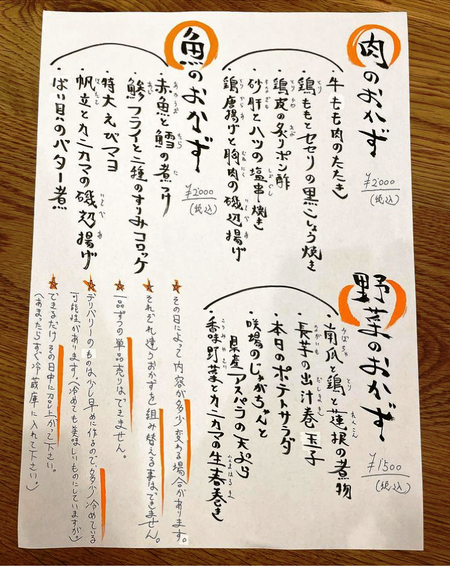 肉のおかず
¥2000
(税込)
・牛もも肉のたたき
・鶏ももとセセリの黒こしょう焼き
・鶏皮の炙りポン酢
・砂肝とハツの塩串焼き
・鶏唐揚げと胸肉の磯辺揚げ
魚のおかず
¥2000
(税込)
・赤魚と鱈の煮つけ
・鯵フライと二種のすりみコロッケ
・特大えびマヨ
・帆立とカニカマの磯辺揚げ
・ばい貝のバター煮
野菜のおかず
¥1500
(税込)
・南瓜と鶏と蓮根の煮物
・長芋の出汁巻玉子
・本日のポテトサラダ
・咲場のじゃがちゃんと
県産アスパラの天ぷら
・香味野菜とカニカマの生春巻き
★その日によって内容が多少変わる場合があります。
★それぞれ違うおかずを組み替える事はできません。
★一品ずつの単品売りはできません。
★デリバリーのものは少し早めに作るので、多少冷めている
可能性があります。(冷めても美味しいものにしていますが)
★できるだけその日中に召上がって下さい。
(あまったらすぐ冷蔵庫に入れて下さい)